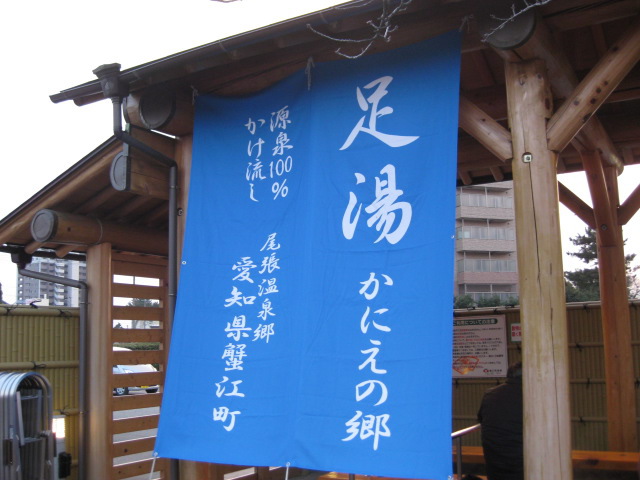 足湯 かにえの郷
源泉100%
かけ流し
尾張温泉郷
愛知県蟹江町